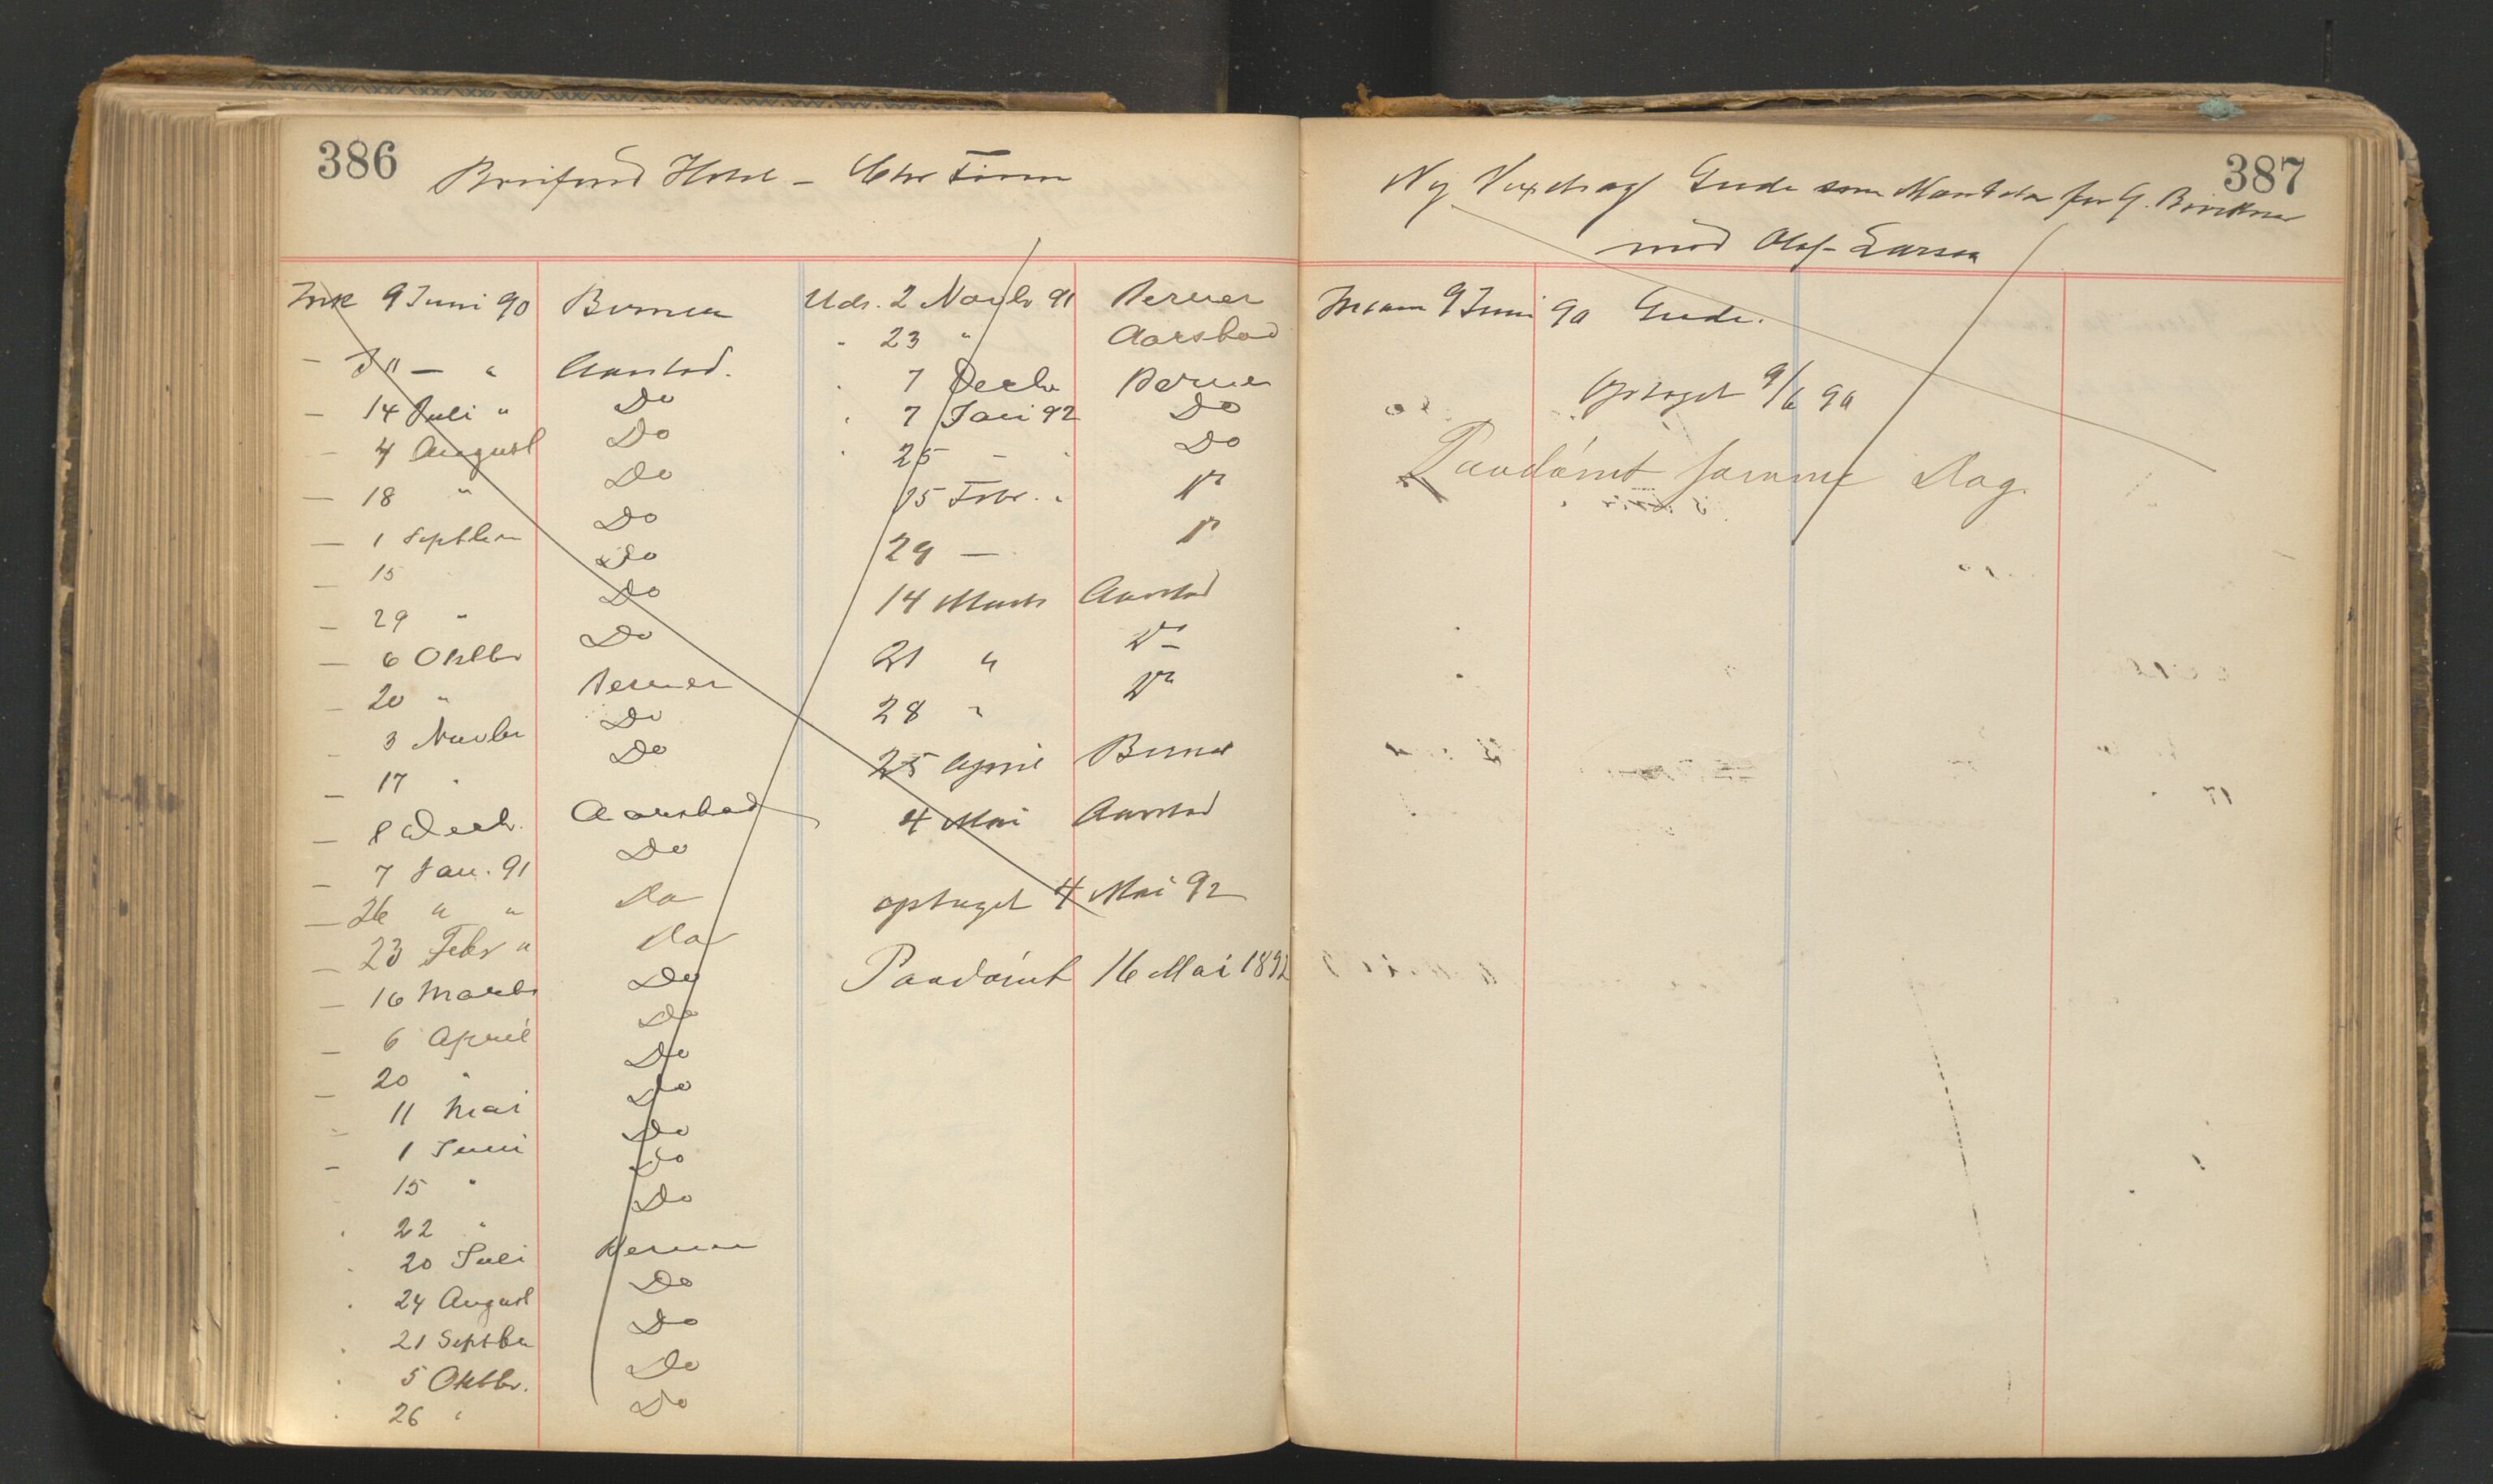 386
Hotel –
9 Juni 90 Berner
– 30 – " Aarstad.
– 14 Juli " Do
– 4 August Do
– 18 " Do
– 1 Septber Do
– 15 Do
– 29 " Do
– 6 Oktbr Do
– 20 " Berner
– 3 Novbr Do
– 17 " Do
– 8 Decb. Aarstad
– 7 Jan. 91 Do
– 26 " " Do
– 23 Febr " Do
– 16 Marts Do
– 6 April Do
– 20 " Do
" 11 Mai Do
– 1 Juni Do
15 " Do
" 22 " Do
" 20 Juli Berner
" 24 August Do
" 21 Septbr Do
" 5 Oktbr. Do
" 26 " Do
Uds. 2 Novbr 91 Berner
" 23 " Aarstad
" 7 Decbr Berner
" 7 Jan 92 Do
" 25 – " Do
15 Febr. " Do
29 – Do
14 Marts Aarstad
21 " Do
28 " Do
25 April Berner
4 Mai Aarstad
optaget 4 Mai 92
Paadömt 16 Mai 1892
387
Ny Gude som for G.
mod Olaf Larsen
9 Juni 90 Gude.
Optaget 9/6 90
Paadömt samme Dag.